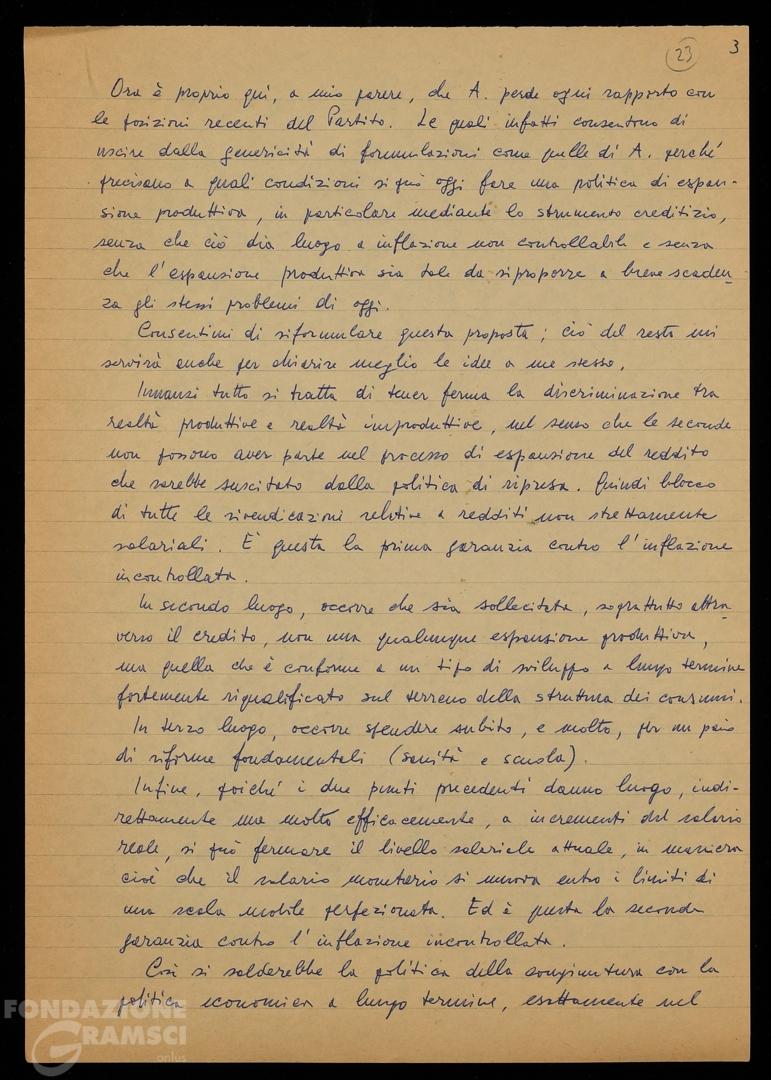 23
3
Ora è proprio qui, a mio parere, che A. perde ogni rapporto con
le posizioni recenti del Partito. Le quali infatti consentono di
uscire dalla genericità di formulazioni come quelle di A. perché
precisano a quali condizioni si può oggi fare una politica di espan-
sione produttiva, in particolare mediante lo strumento creditizio,
senza che ciò dia luogo a inflazione non controllabile e senza
che l'espansione produttiva sia tale da riproporre a breve scaden-
za gli stessi problemi di oggi.
Consentimi di riformulare questa proposta; ciò del resto mi
servirà anche per chiarire meglio le idee a me stesso.
Innanzi tutto si tratta di tener ferma la discriminazione tra
realtà produttive e realtà improduttive, nel senso che le seconde
non possono aver parte nel processo di espansione del reddito
che sarebbe suscitato dalla politica di ripresa. Quindi blocco
di tutte le rivendicazioni relative a redditi non strettamente
salariali. È questa la prima garanzia contro l'inflazione
incontrollata.
In secondo luogo, occorre che sia sollecitata, soprattutto attra-
verso il credito, non una qualunque espansione produttiva,
ma quella che è conforme a un tipo di sviluppo a lungo termine
fortemente riqualificato sul terreno della struttura dei consumi.
In terzo luogo, occorre spendere subito, e molto, per un paio
di riforme fondamentali (sanità e scuola).
Infine, poiché i due punti precedenti danno luogo, indi-
rettamente ma molto efficacemente, a incrementi del salario
reale, si può fermare il livello salariale attuale, in maniera
cioè che il salario monetario si muova entro i limiti di
una scala mobile perfezionata. Ed è questa la seconda
garanzia contro l'inflazione incontrollata.
Così si salderebbe la politica della congiuntura con la
politica economica a lungo termine, esattamente nel
FONDAZIONE
GRAMSCI
onlus